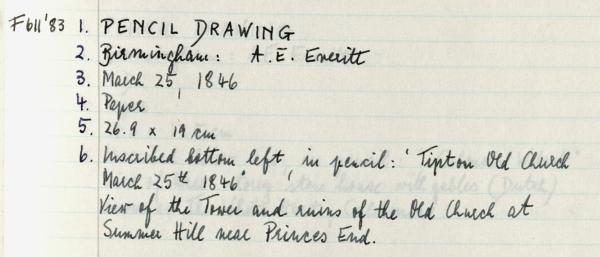 F611'83 1. PENCIL DRAWING
2. Birmingham: A. E. Everitt
3. March 25, 1846
4. Paper
5. 26.9 x 19 cm
6. Inscribed bottom left, in pencil: 'Tipton Old Church
March 25th 1846'
View of the Tower and ruins of the Old Church at
Summer Hill near Princes End.